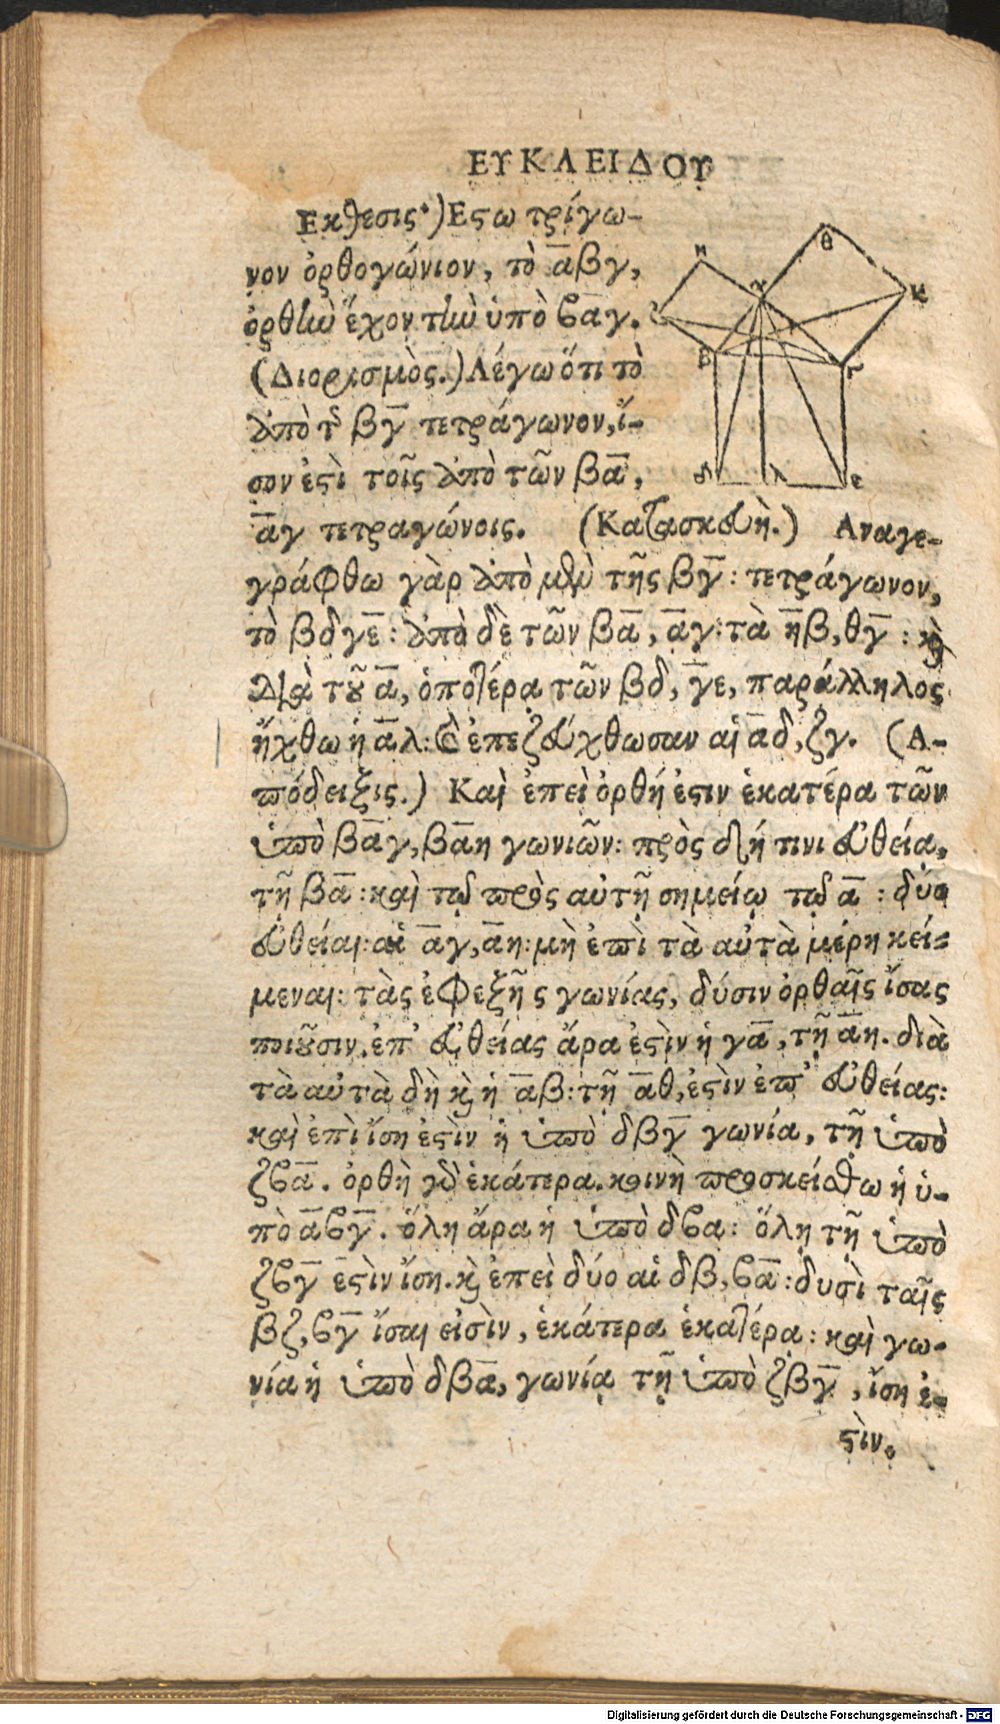 ΕΥΚΛΕΙΔΟΥ
Εκθεσις·) Εςω τρίγω-
νον ὀρθογώνιον, τὸ α̅βγ,
ὀρθὴν ἔχον τὴν ὑπὸ βα̅γ.
(Διορισμὸς.) Λέγω ὅτι τὸ
ἀπὸ τῆς βγ̅ τετράγωνον, ἴ-
σον ἐςὶ τοῖς ἀπὸ τῶν βα̅,
α̅γ τετραγώνοις. (Κατασκευὴ.) Αναγε-
γράφθω γὰρ ἀπὸ μὲν τῆς βγ̅: τετράγωνον,
τὸ βδγε̅: ἀπὸ δὲ τῶν βα̅, α̅γ: τὰ η̅β, θγ̅: καὶ
διὰ τοῦ α̅, ὁποτέρα τῶν βδ, γ̅ε, παράλληλος
ἤχθω ἡ α̅λ: καὶ ἐπεζεύχθωσαν αἱ α̅δ, ζγ. (Α-
πόδειξις.) Καὶ ἐπεὶ ὀρθή ἐςιν ἑκατέρα τῶν
ὑπὸ βα̅γ, βα̅η γωνιῶν: πρὸς δή τινι εὐθεία,
τῇ βα̅: καὶ τῷ πρὸς αὐτῇ σημείῳ τῷ α̅: δύο
εὐθείαι: αἱ α̅γ, α̅η: μὴ ἐπὶ τὰ αὐτὰ μέρη κεί-
μεναι: τὰς ἐφεξῆς γωνίας, δύσιν ὀρθαῖς ἴσας
ποιοῦσιν. ἐπ' εὐθείας ἄρα ἐςὶν ἡ γα̅, τῇ α̅η. διὰ
τὰ αὐτὰ δὴ καὶ ἡ α̅β: τῇ α̅θ, ἐςὶν ἐπ' εὐθείας:
καὶ ἐπὶ ἴση ἐςὶν ἡ ὑπὸ δβγ̅ γωνία, τῇ ὑπὸ
ζβα̅. ὀρθὴ γὰρ ἑκάτερα. κοινὴ προσκείσθω ἡ ὑ-
πὸ α̅βγ̅. ὅλη ἄρα ἡ ὑπὸ δβα: ὅλῃ τῇ ὑπὸ
ζβγ̅ ἐςὶν ἴση. καὶ ἐπεὶ δύο αἱ δβ, βα̅: δυσὶ ταῖς
βζ, βγ̅ ἴσαι εἰσὶν, ἑκάτερα ἑκατέρα: καὶ γω-
νία ἡ ὑπὸ δβα̅, γωνίᾳ τῇ ὑπὸ ζβγ̅, ἴση ἐ-
ςὶν.
Η
Θ
Κ
Β
Γ
Δ
Λ
Ε
Digitalisierung gefördert durch die Deutsche Forschungsgemeinschaft - DFG